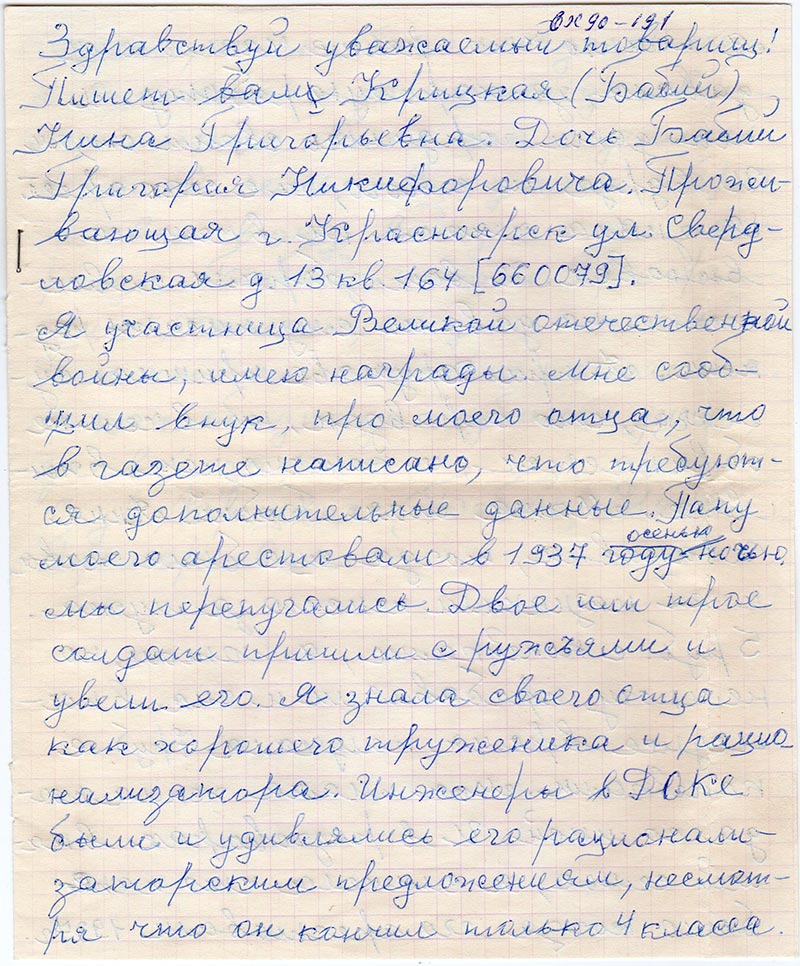 вх 90-191
Здравствуй уважаемый товарищ!
Пишет вам Крицкая (Бабий)
Нина Григорьевна. Дочь Бабий
Григория Никифоровича. Прожи-
вающая г. Красноярск ул. Сверд-
ловская д 13 кв. 164 [660079].
Я участница Великой отечественной
войны, имею награды. Мне сооб-
щил внук, про моего отца, что
в газете написано, что требуют-
ся дополнительные данные. Папу
осенью
моего арестовали в 1937 году ночью,
мы перепугались. Двое или трое
солдат пришли с ружъями и
увели его. Я знала своего отца
как хорошего труженика и рацио
нализатора. Инженеры в ДОКе
были и удивлялись его рационали-
заторским предложениям, несмот-
ря что он кончил только 4 класса.